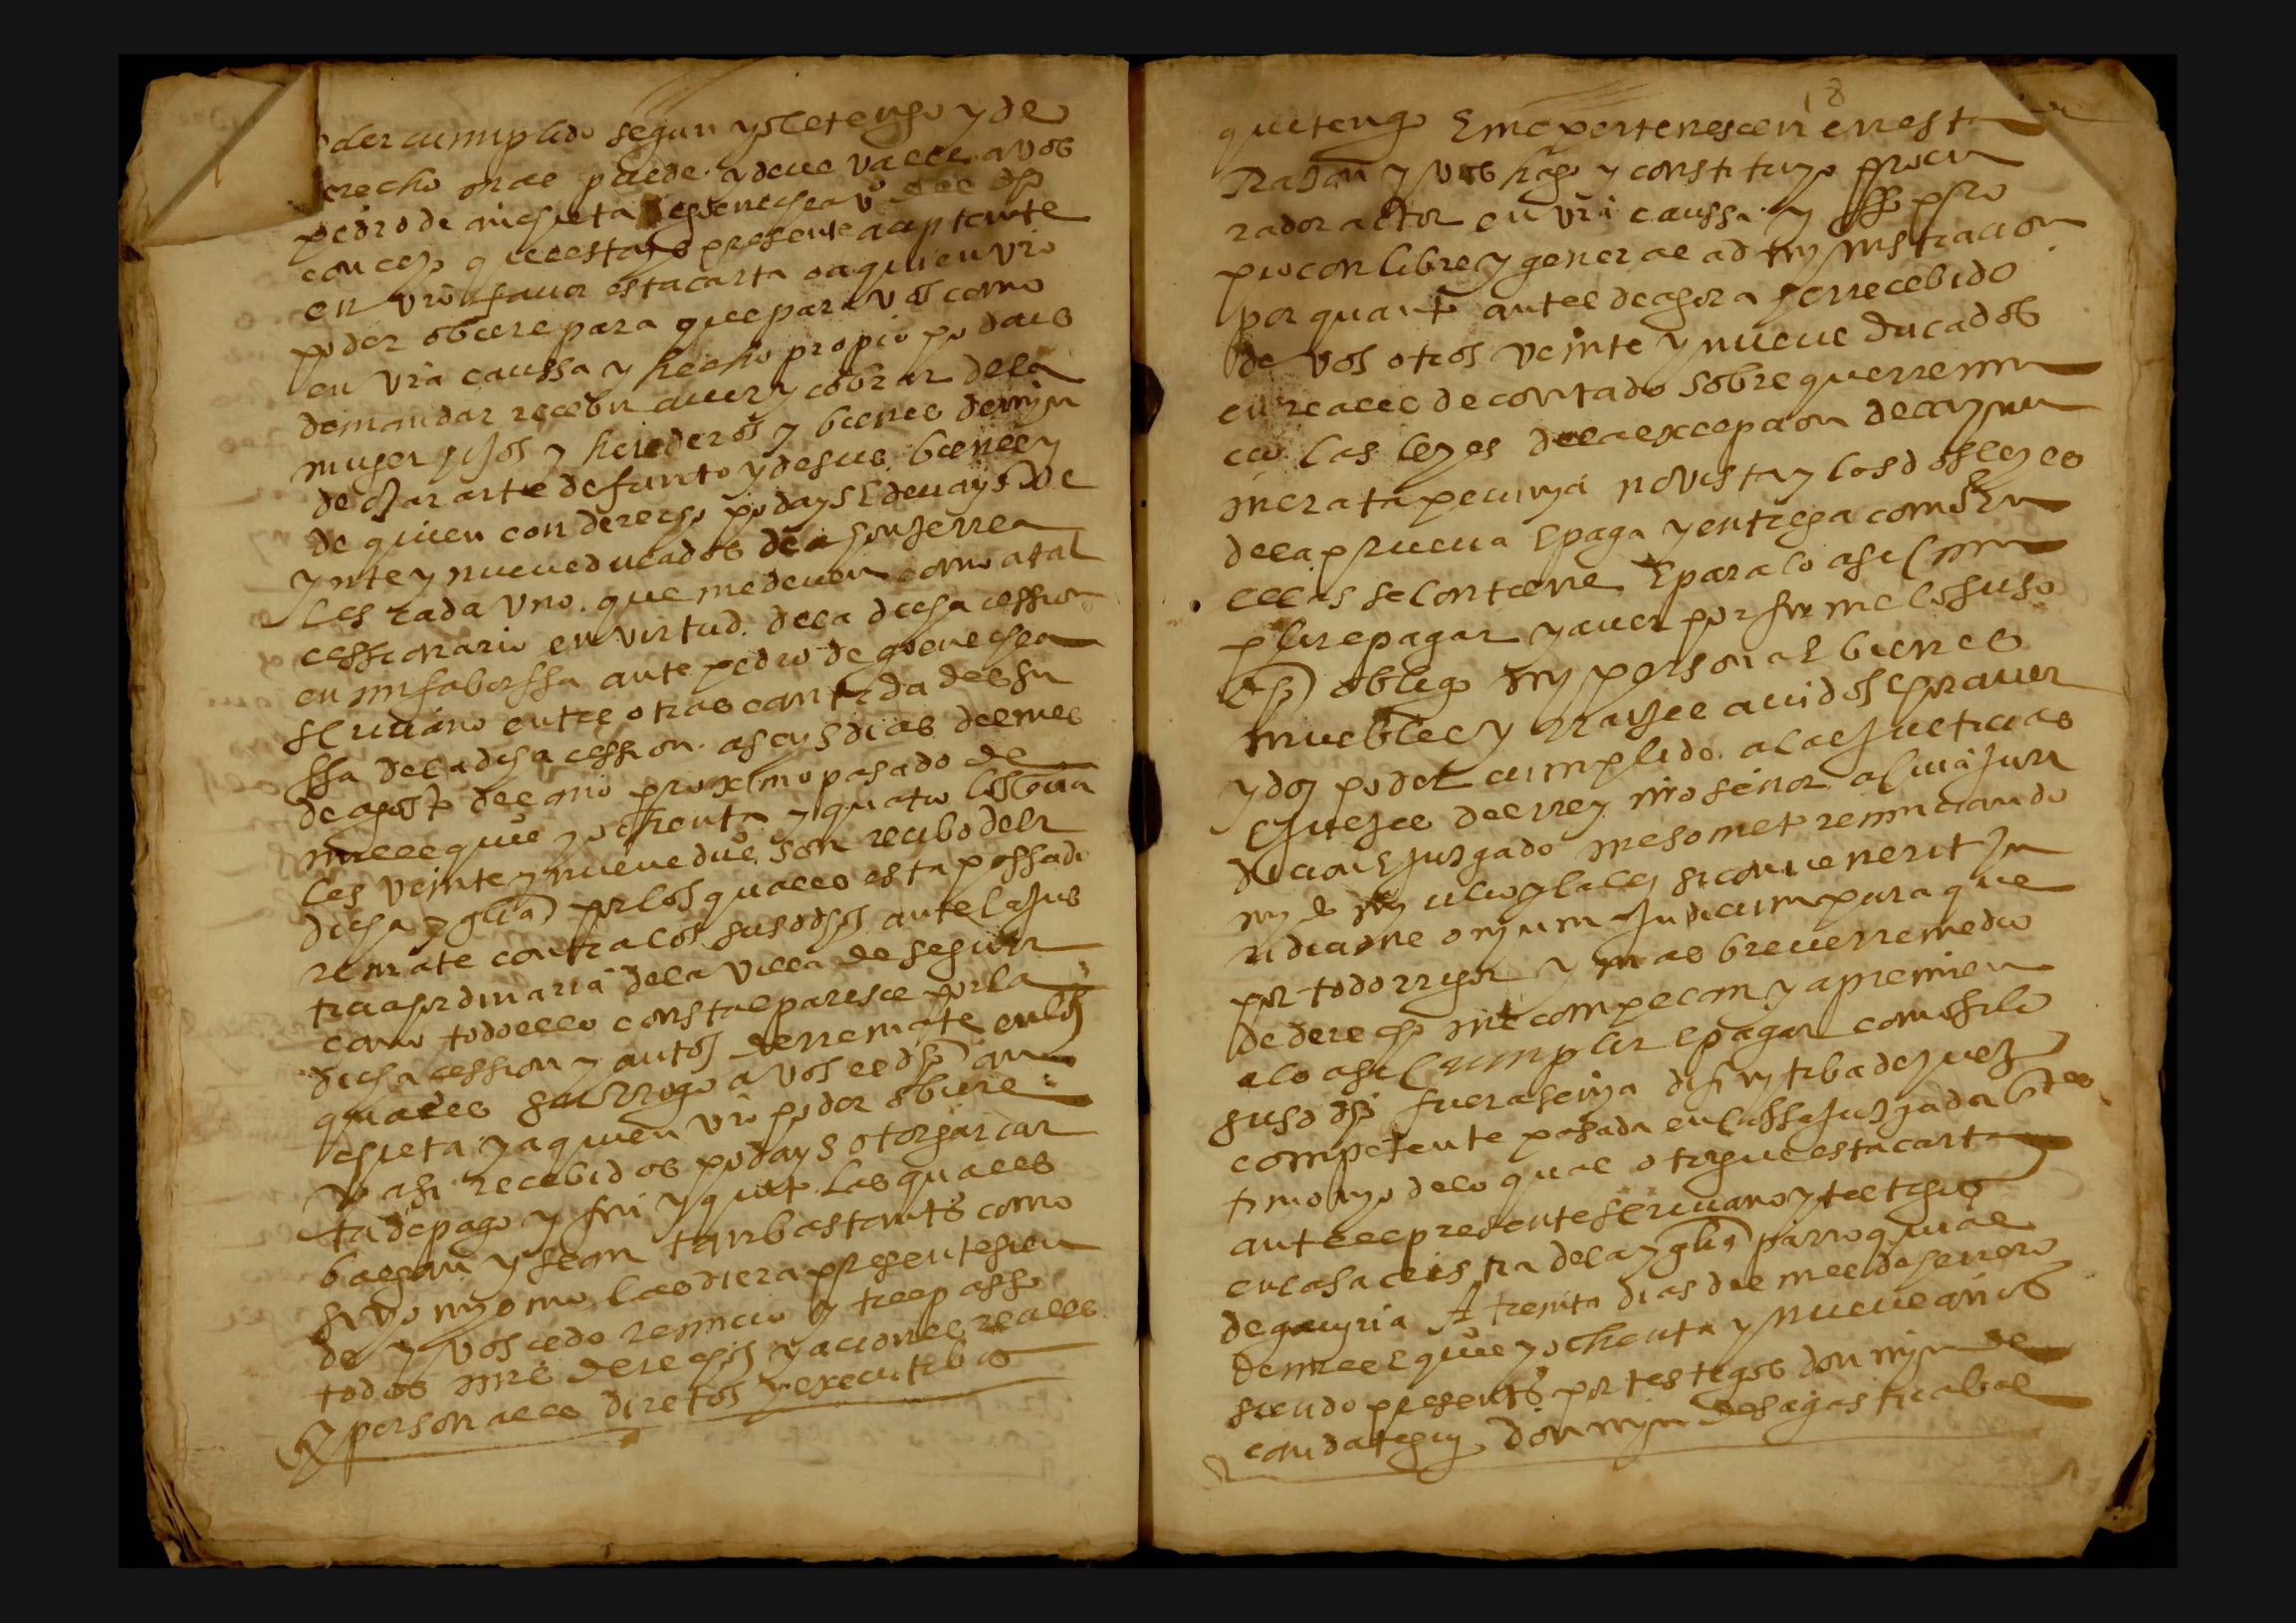 oder cumplido segun yo le tengo y de
recho mas puede y deve valer a vos
pedro de anchieta
concejo que estays presente aceptante
en vro favor esta carta o a quien vro
poder obiere para que para vos como
en vra caussa y hecho propio podais
demandar recebir aver y cobrar de la
muger hijos y herederos y bienes de mrn
de ojararte defunto y de sus bienes y
de quien con derecho podays e devays
ynte y nueve ducados de a honze rrea
les cada uno que me deven como a tal
cessionario en virtud de la dicha cession
en mi fabor ffa ante pedro de goenechea
scrivano entre otras cantidades
ffa de la dicha cession a seys dias del mes
de agosto del año proximo passado de
mill e quis y ochenta y quatro los
les veinte y nueve dus son recibo de la
dicha yglia por los quales esta passado
remate contra los susodhos ante la jus
ticia hordinaria de la villa de segura
como todo ello consta e paresce por la
dicha cession y autos de rremate en los
quales subrrogo a vos el dho an
chieta y a quien vro poder obiere
y asi recebidos podays otorgar car
ta de pago y fin y quito las quales
balgan y sean tan bastantes como
si yo mismo las diera presente sien
do y vos cedo renuncio y traspasso
todos mis derechos y aciones reales
y personales diretos y executibos
que tengo e me pertenescen en esta
rrazon y vos hago y constituyo procu
rador actor en vra caussa y ffho pro
pio con libre y general administracion
por quanto antes de agora he rrecebido
de vos otros veinte y nueve ducados
en reales de contado sobre que rrenun
cio las leyes de la excepcion de la ynnu
merata pecunya no vista y los dos leyes
de la prueva e paga y entrega como en
ellas se contiene e para lo asi cum
plir e pagar y aver por firme lo suso
dho obligo my persona e bienes
muebles y rrayzes avidos e por aver
y doy poder cumplido a las justicias
e juezes del rrey nro señor a cuia juri
dicion e juzgado me someto renunciando
my fuero y la ley si convenerit
ridicione omnium judicum para que
por todo rrigor y mas breve rremedio
de derecho me compelan y apremien
a lo asi cumplir e pagar como si lo
suso dho fuera senya difinytiba de juez
competente pasada en cossa juzgada
timonyo de lo qual otorgue esta carta
ante el presente scrivano y testigos
en casa de la yglia parroquial
de gaviria A treinta dias del mes de henero
de mill e quis y ochenta y nueve años
siendo presentes por testigos don mrn de
candategui don mrn de sagastiçabal